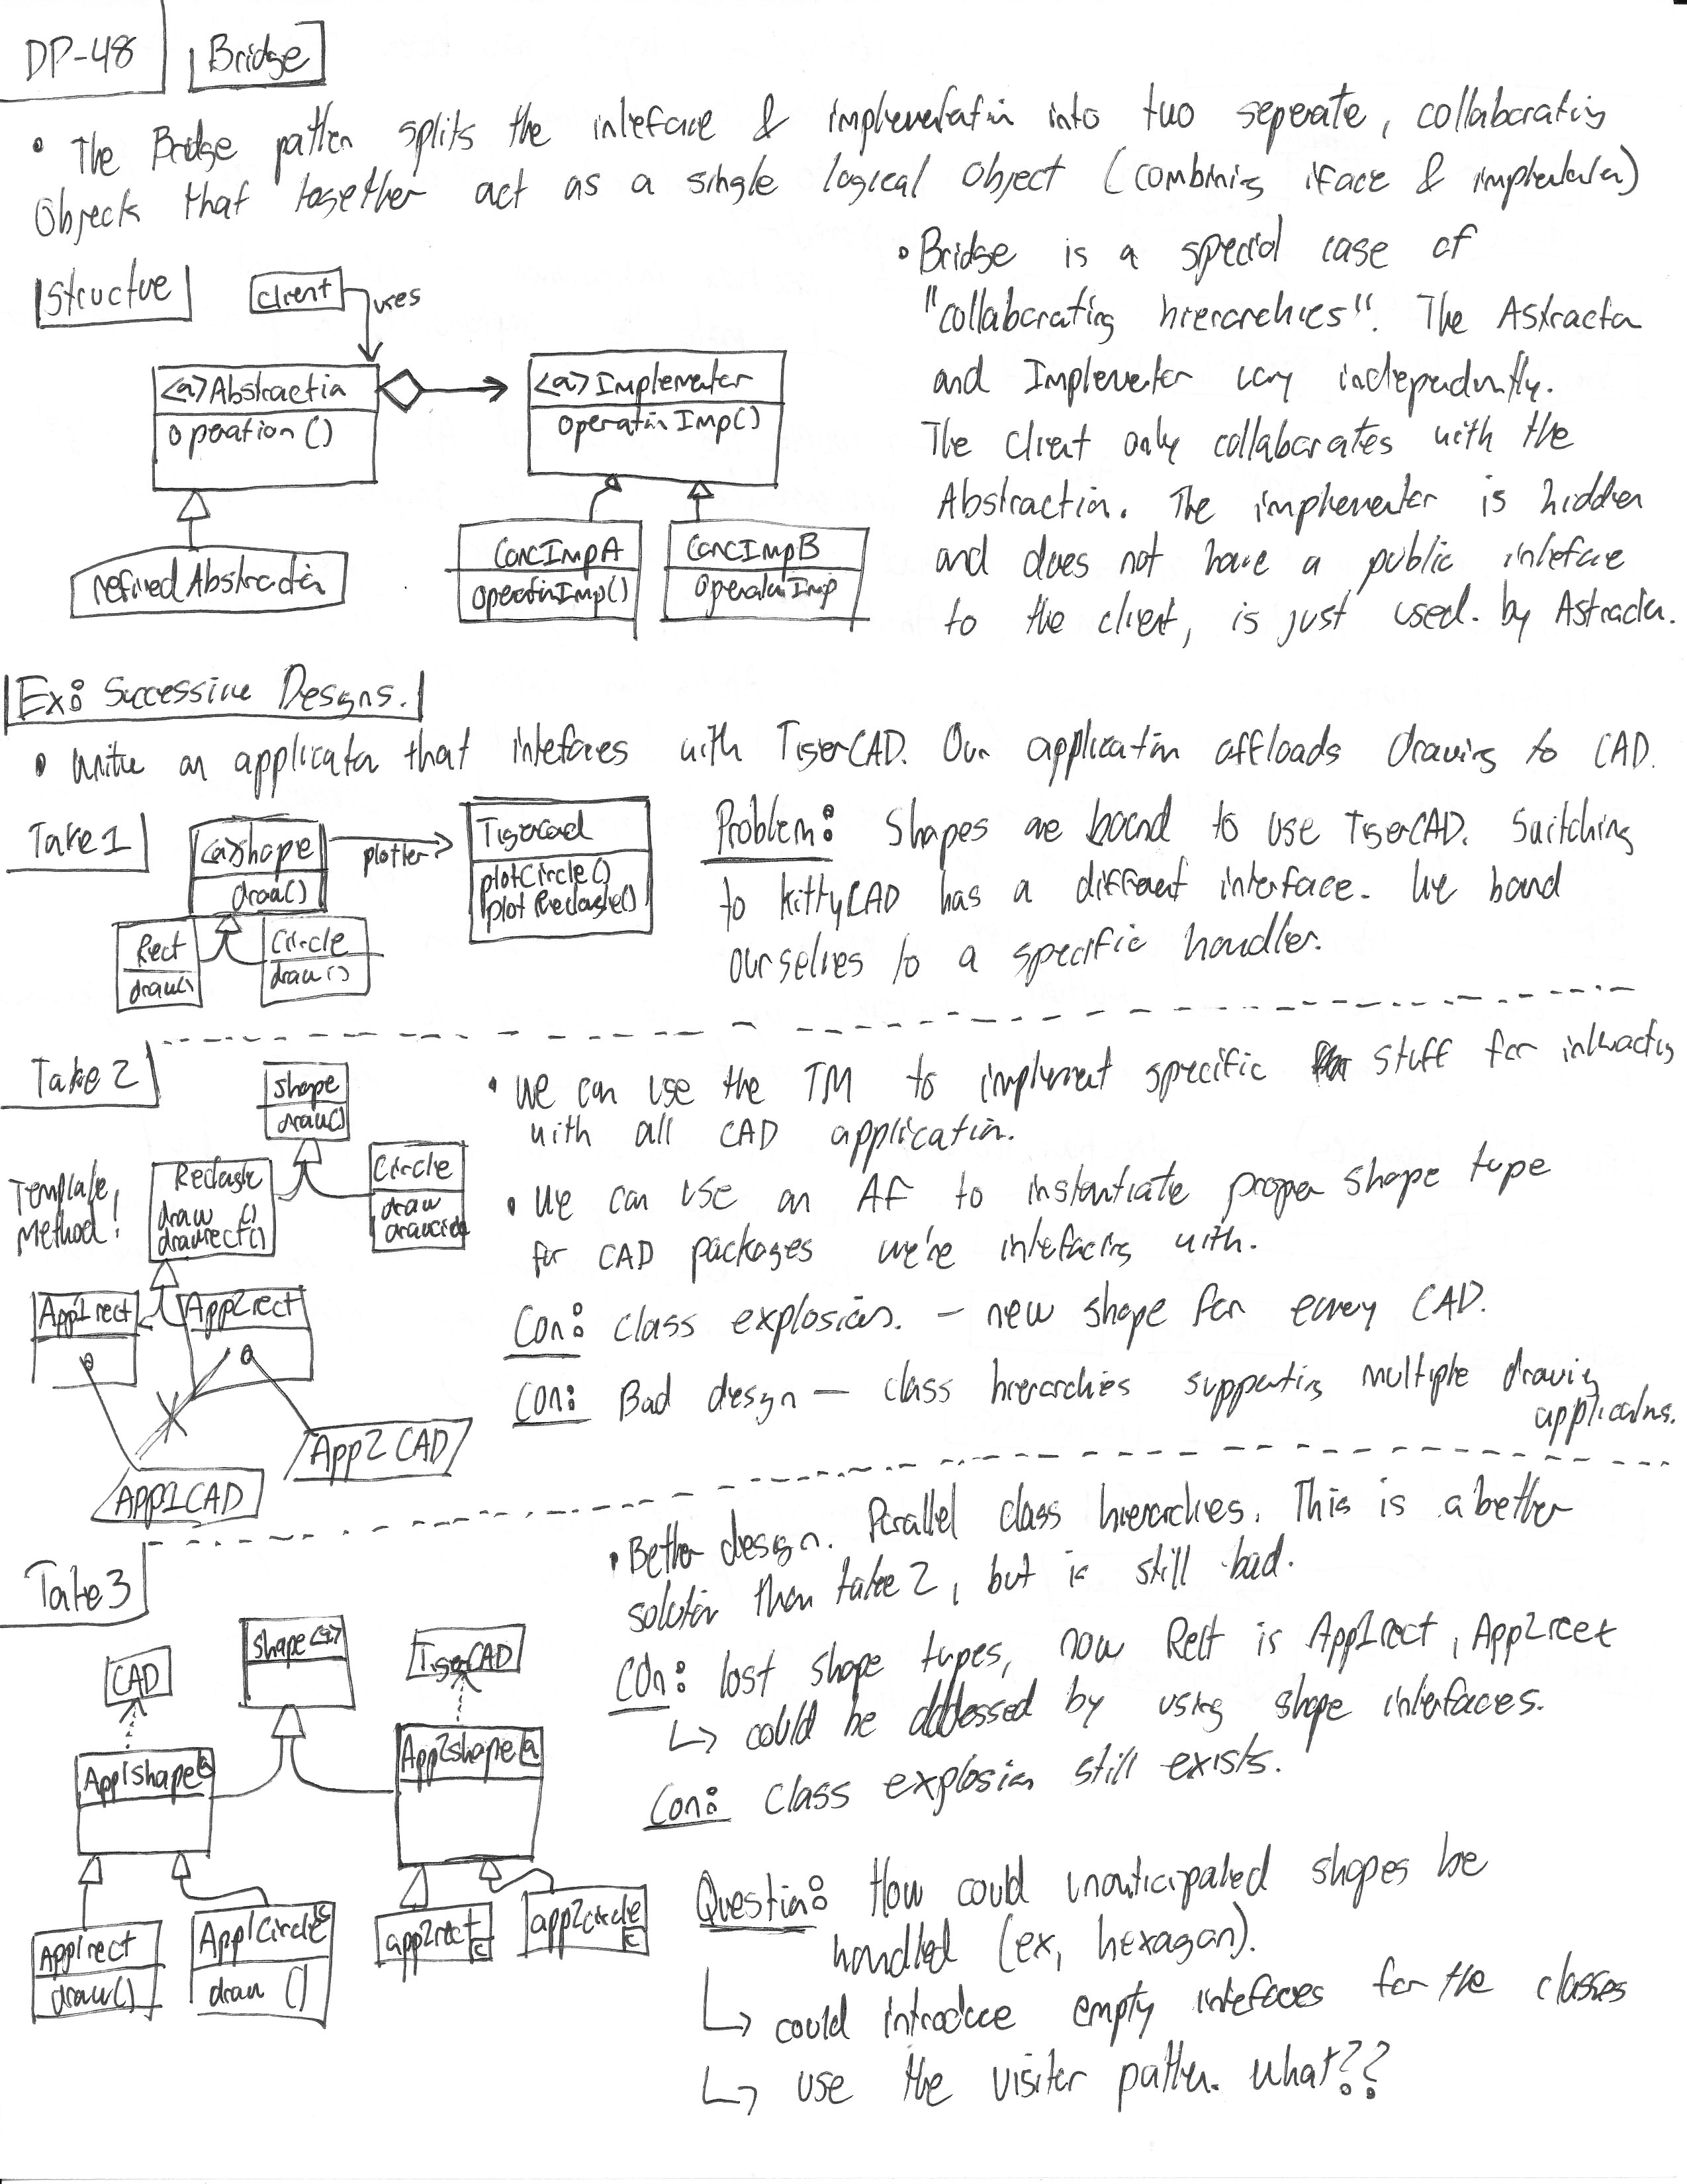 DP-48
Bridge
• The Bridge pattern splits the interface & implementation into two seperate, collaborating
Objects that together act as a single logical Object (combining iface & implementation)
Structure
client
uses
<a>Abstraction
operation()
<a>Implementer
operationImp()
refinedAbstraction
ConcImpA
operationImp()
ConcImpB
operationImp
• Bridge is a special case of
"collaborating hierarchies". The Astraction
and Implementer vary independently.
The client only collaborates with the
Abstraction. The implementer is hidden
and does not have a public interface
to the client, is just used. by Astraction.
Ex: Successive Designs.
• Write an application that interfaces with TigerCAD. Our application offloads drawing to CAD.
Take 1
<a>shape
draw()
plotter
Tigercad
plotCircle()
plotRectangle()
Rect
draw()
Circle
draw()
Problem: Shapes are bound to use TigerCAD. Switching
to kittyCAD has a different interface. We bound
ourselves to a specific handler.
Take 2
shape
draw()
Template
Method!
Rectangle
draw ()
drawrect()
Circle
draw
drawcircle
App1rect
App2rect
App2 CAD
App1CAD
• We can use the TM to implement specific stuff for interacting
with all CAD application.
• We can use an AF to instantiate proper shape type
for CAD packages we're interfacing with.
Con: class explosion. – new shape for every CAD.
Con: Bad design – class hierarchies supporting multiple drawing
applications.
Take 3
CAD
shape<a>
TigerCAD
App1shape a
App2shape a
App1rect
draw()
App1Circle c
draw ()
app2rect c
app2circle c
• Better design. Parallel class hierarchies. This is a better
solution than take 2, but is still bad.
Con: lost shape types, now Rect is App1rect, App2rect
↳ could be addressed by using shape interfaces.
Con: class explosion still exists.
Question: How could unanticipated shapes be
handled (ex, hexagon).
↳ could introduce empty interfaces for the classes
↳ use the visitor pattern. what??